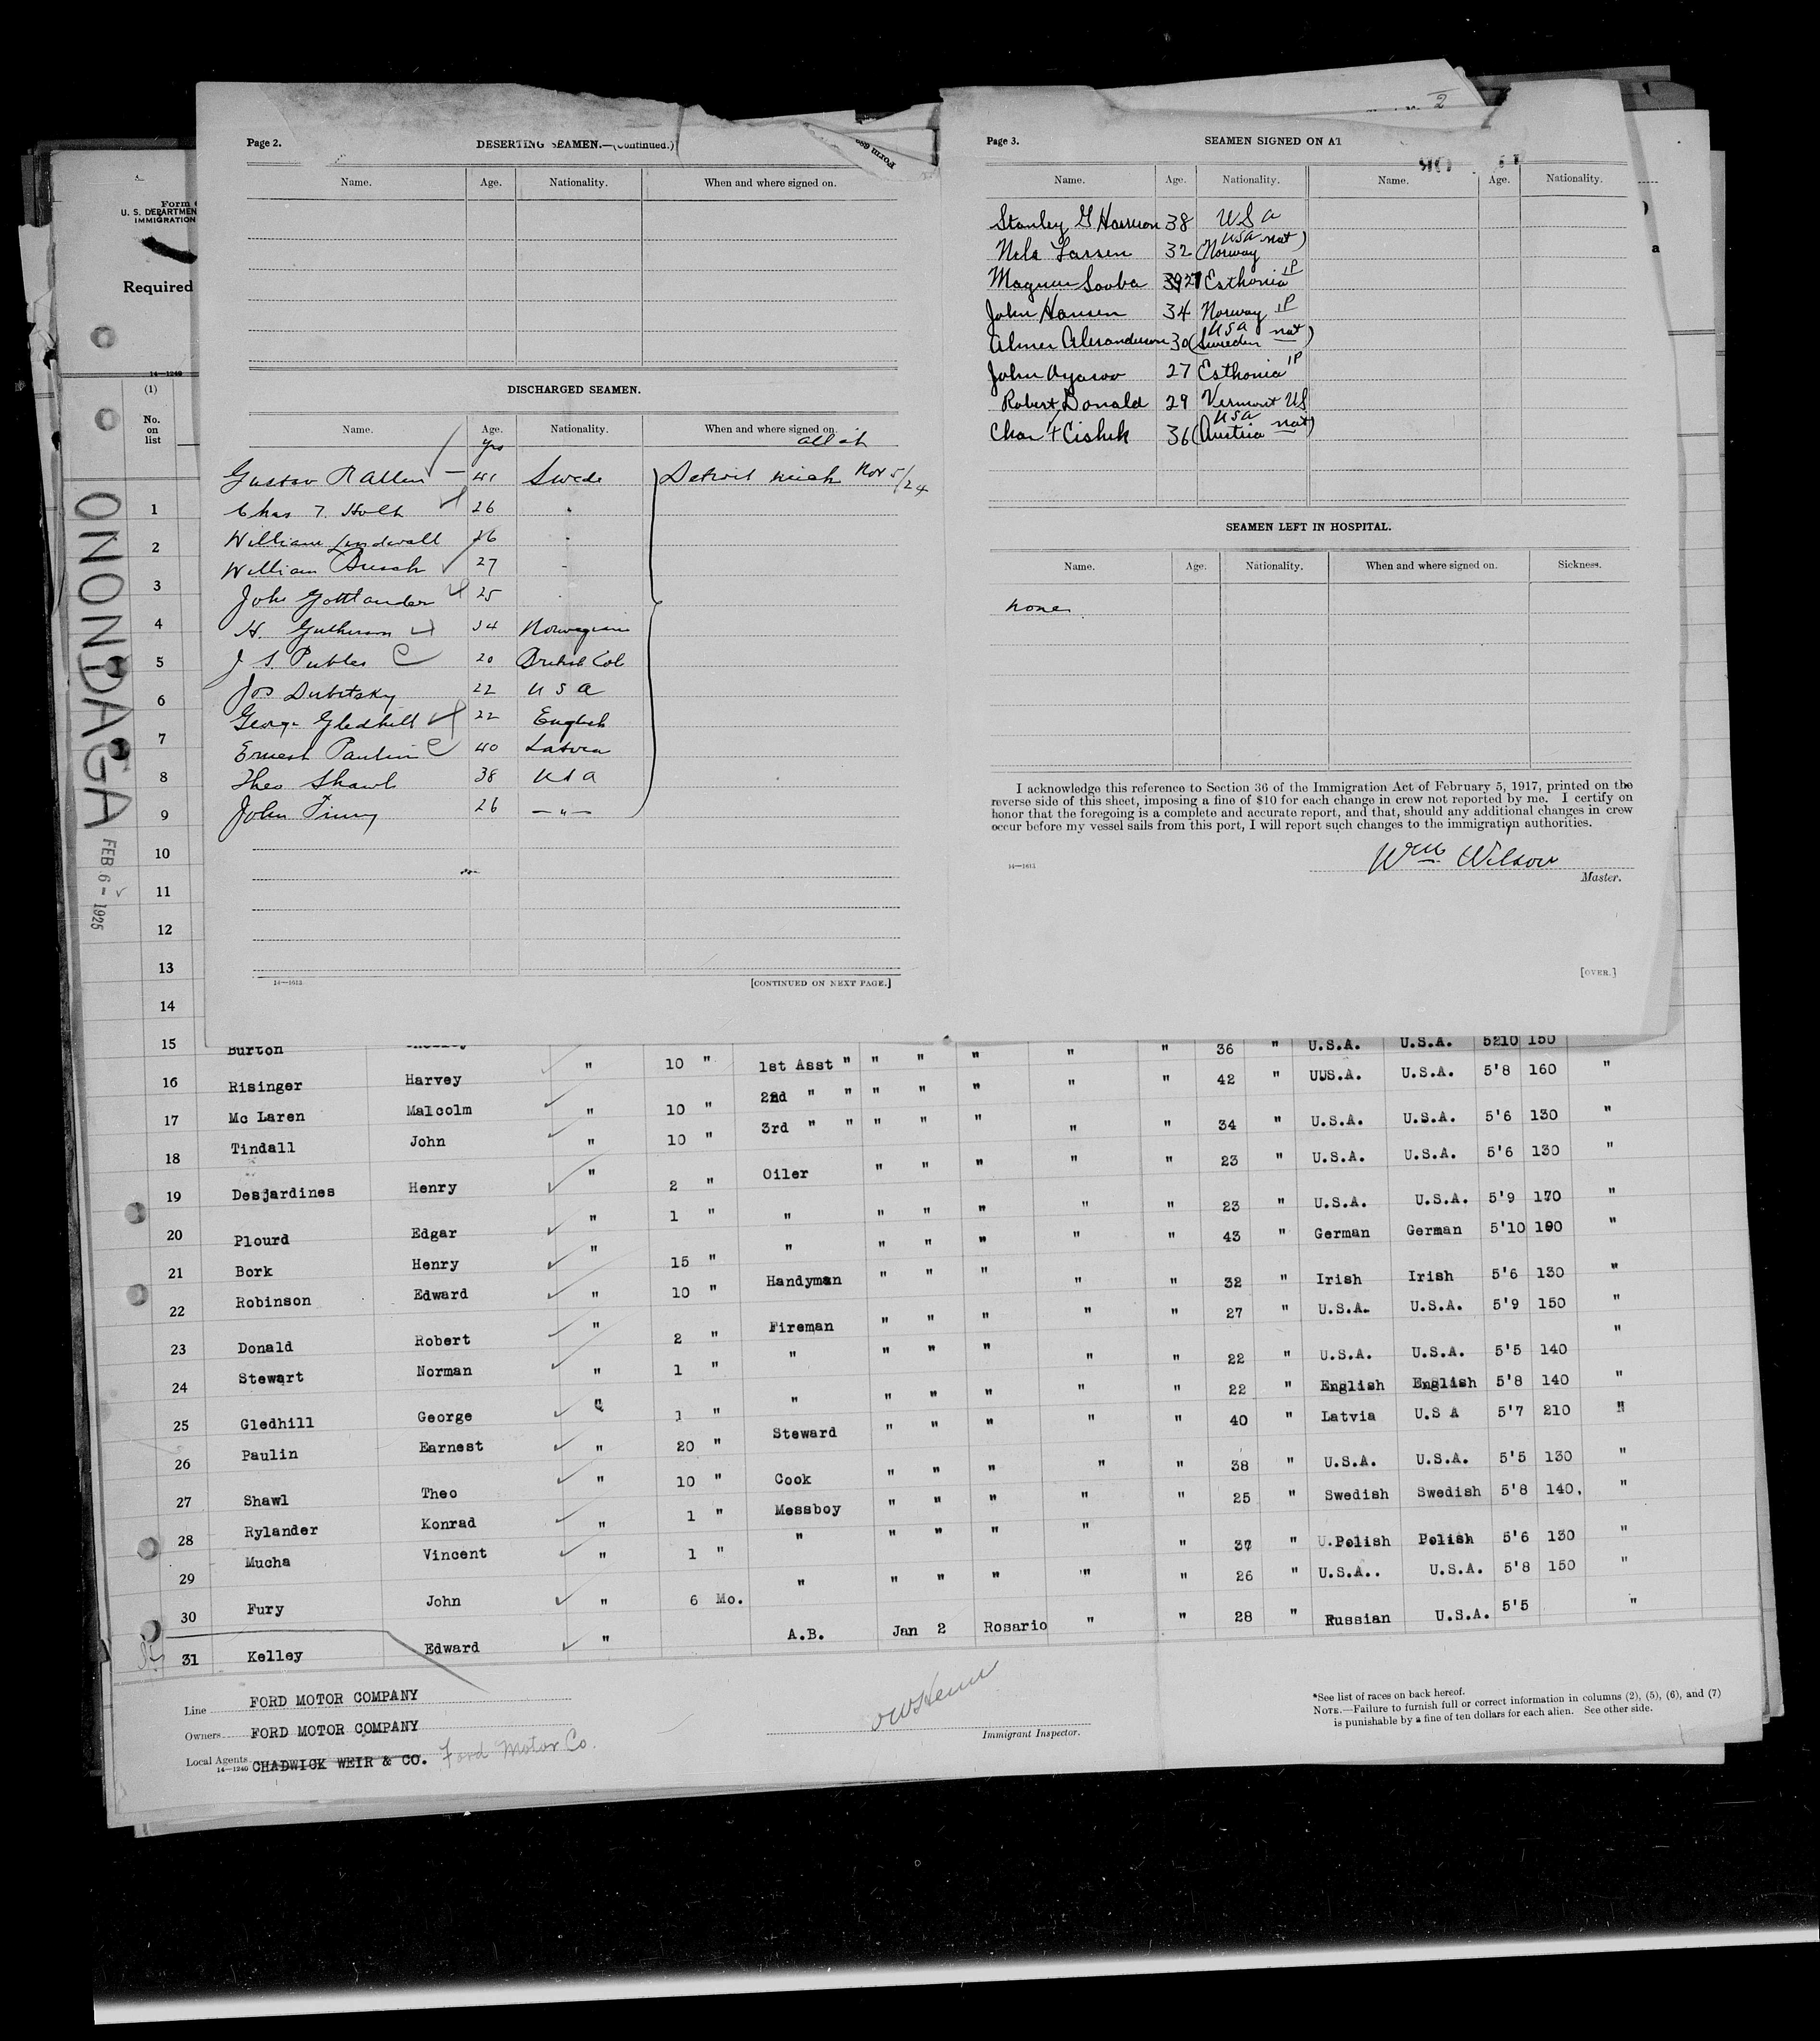 Page 2.
DESERTING SEAMEN.—(Continued.)
Name. Age. Nationality. When and where signed on.
DISCHARGED SEAMEN.
Name. Age. Nationality. When and where signed on.
yrs all at
Gustav R Allen 41 Swede Detroit Mich Nov 5/24
Chas T. Holt 26 "
William Lindwall 26 "
William Busch 27 "
John Gottlander 25
H. 34 Norwegian
J S Publes 20 British Col
Jos Dubitsky 22 U S A
George Gledhill 22 English
Ernest Paulin 40 Latvia
Theo Shawl 38 U S A
John 26 — " —
14—1613
[CONTINUED ON NEXT PAGE.]
2
Page 3.
SEAMEN SIGNED ON AT
Name. Age. Nationality. Name. Age. Nationality.
Stanley G Harrison 38 U S A
Nels Larsen 32 (Norway USA nat)
Magnus Sooba 27 Esthonia 1P
John Hansen 34 Norway 1P
Almer Alexanderson 30 (Sweden USA nat)
John 27 Esthonia 1P
Robert Donald 29 Vermont US
Chas Cishek 36 (Austria USA nat)
SEAMEN LEFT IN HOSPITAL.
Name. Age. Nationality. When and where signed on. Sickness.
none
I acknowledge this reference to Section 36 of the Immigration Act of February 5, 1917, printed on the
reverse side of this sheet, imposing a fine of $10 for each change in crew not reported by me. I certify on
honor that the foregoing is a complete and accurate report, and that, should any additional changes in crew
occur before my vessel sails from this port, I will report such changes to the immigration authorities.
Wm Wilson
14—1613
Master.
[OVER.]
Form
U. S. DEPARTMEN
IMMIGRATION
Required
14—1240
(1)
No.
on
list
ONONDAGA
FEB 6 - 1925
1
2
3
4
5
6
7
8
9
10
11
12
13
14
15 Burton " 10 " 1st Asst " " " " " " 36 " U.S.A. U.S.A. 5210 150
16 Risinger Harvey " 10 " 2nd " " " " " " " 42 " UUS.A. U.S.A. 5'8 160 "
17 Mc Laren Malcolm " 10 " 3rd " " " " " " " 34 " U.S.A. U.S.A. 5'6 130 "
18 Tindall John " 2 " Oiler " " " " " 23 " U.S.A. U.S.A. 5'6 130 "
19 Desjardines Henry " 1 " " " " " " " 23 " U.S.A. U.S.A. 5'9 170 "
20 Plourd Edgar " 15 " " " " " " " 43 " German German 5'10 190 "
21 Bork Henry " 10 " Handyman " " " " " 32 " Irish Irish 5'6 130 "
22 Robinson Edward " 2 " Fireman " " " " " 27 " U.S.A. U.S.A. 5'9 150 "
23 Donald Robert " 1 " " " " " " " 22 " U.S.A. U.S.A. 5'5 140 "
24 Stewart Norman " 1 " " " " " " " 22 " English English 5'8 140 "
25 Gledhill George " 20 " Steward " " " " " 40 " Latvia U.S A 5'7 210 "
26 Paulin Earnest " 10 " Cook " " " " " 38 " U.S.A. U.S.A. 5'5 130 "
27 Shawl Theo " 1 " Messboy " " " " " 25 " Swedish Swedish 5'8 140. "
28 Rylander Konrad " 1 " " " " " " " U.Polish Polish 5'6 130 "
29 Mucha Vincent " 6 Mo. " " " " " " 26 " U.S.A.. U.S.A. 5'8 150 "
30 Fury John " A.B. Jan 2 Rosario " " 28 " Russian U.S.A. 5'5 "
31 Kelley Edward
Line FORD MOTOR COMPANY
Owners FORD MOTOR COMPANY
Local Agents CHADWICK WEIR & CO. Ford Motor Co.
14—1240
Immigrant Inspector.
*See list of races on back hereof.
NOTE.—Failure to furnish full or correct information in columns (2), (5), (6), and (7)
is punishable by a fine of ten dollars for each alien. See other side.